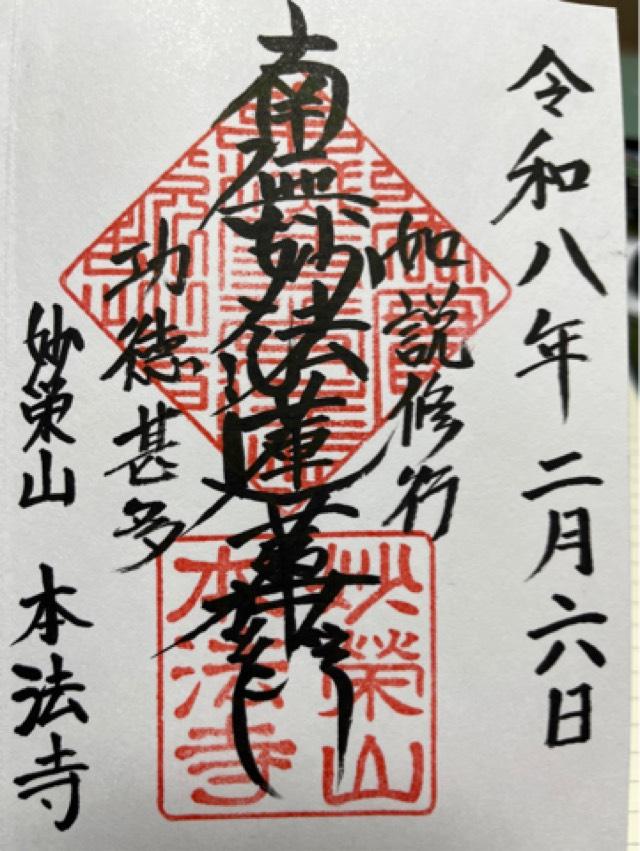 令和八年二月六日
如説修行
南無妙法蓮華経
功徳甚多
妙栄山 本法寺
妙榮山
本法寺